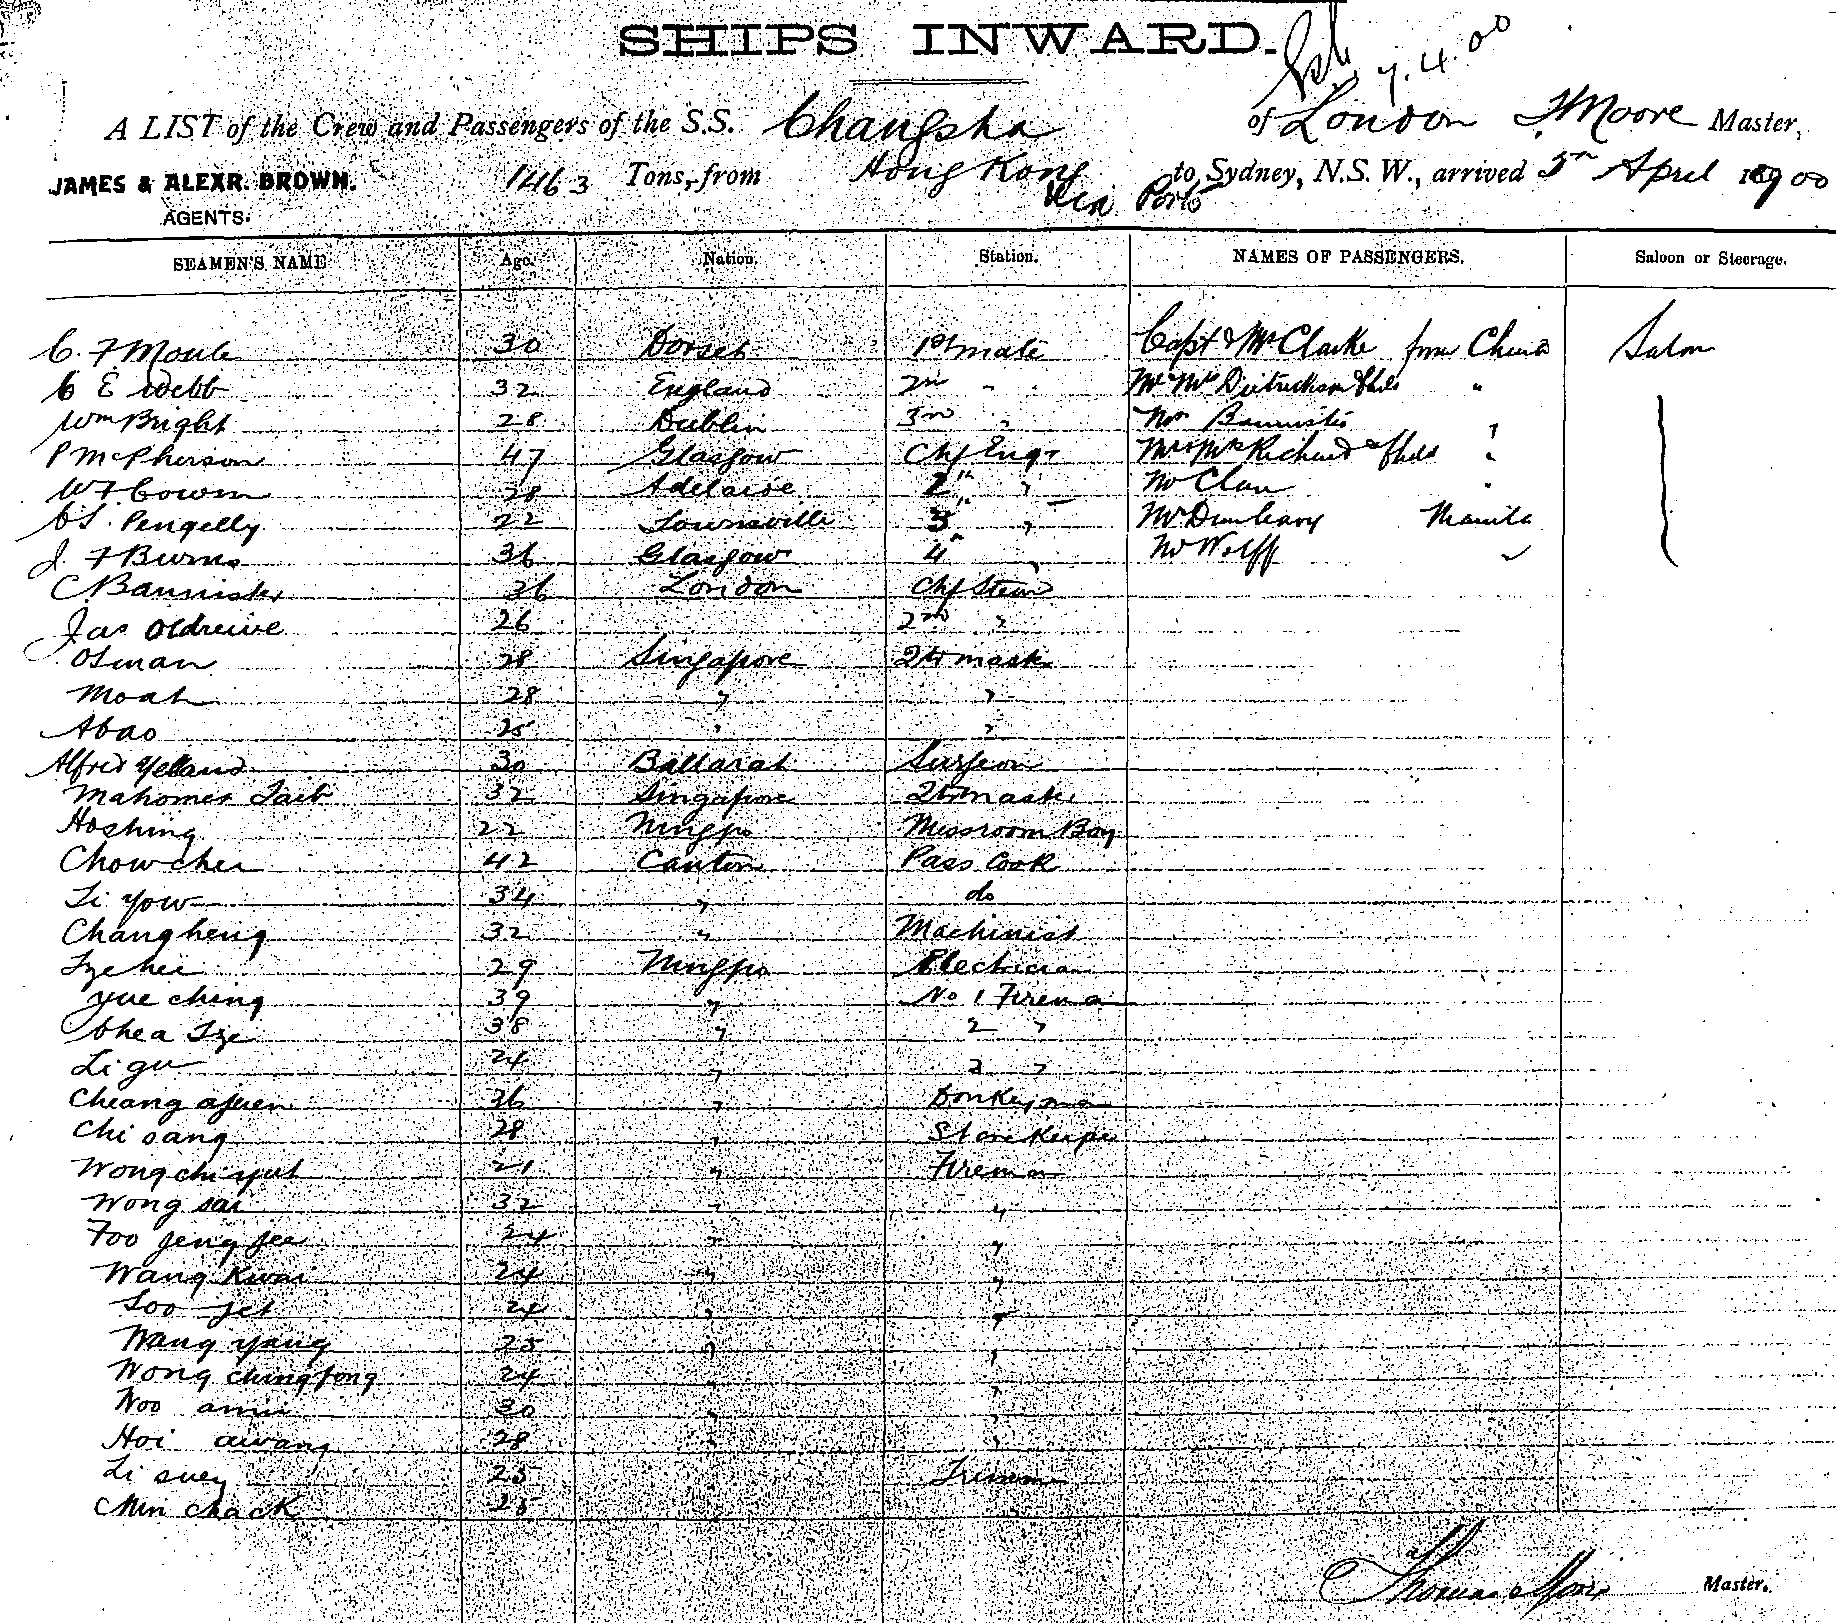 SHIPS INWARD.
7.4.00
A LIST of the Crew and Passengers of the S.S. Changsha of London T Moore Master,
JAMES & ALEXR. BROWN. 1463 Tons, from Hong Kong to Sydney, N.S.W., arrived 5th April 1900
Via Ports
AGENTS.
SEAMEN'S NAME Age. Nation. Station. NAMES OF PASSENGERS. Saloon or Steerage.
C. F Moule 30 Dorset 1st mate Capt & Mrs Clarke from China Salon
C E Webb 32 England 2nd " " Mr Mrs "
Wm Bright 28 Dublin 3rd " Mr Bannister "
P McPherson 47 Glasgow Chf Engr Mr & Mrs Richard & Chld "
W F Cowen 28 Adelaide 2nd " Mr "
C S. Pengelly 22 Townsville 3 " Mr Dunleavy Manila
J. F Burns 36 Glasgow 4th " Mr Wolff "
C Bannister 36 London Chf Stewd
Jas Oldreive 26 2nd "
Osman 28 Singapore Qtr master
Moah 28 " "
Abao 25 " "
Alfred Yelland 30 Ballarat Surgeon
Mahomed Taib 32 Singapore Qtr master
Hoshing 22 Ningpo Messroom Boy
Chow chee 42 Canton Pass Cook
Li Yow 34 " do
Changheng 32 " Machinist
Tze hee 29 Ningpo Electrician
Yue ching 39 " No 1 Fireman
Chea Tze 38 " 2 "
Li gu 24 " 3 "
Cheang 36 " Donkeyman
Chi sang 28 " Storekeeper
Wong chi yut 21 " Fireman
Wong sai 32 " "
Foo jeng jee 24 " "
Wang Kwai 24 " "
Soo jet 24 " "
Wang yang 25 " "
Wong ching fong 24 " "
Woo 30 " "
Hoi awang 28 " "
Li suey 25 " Fireman
Chin chack 25 " "
Thomas Moore Master.